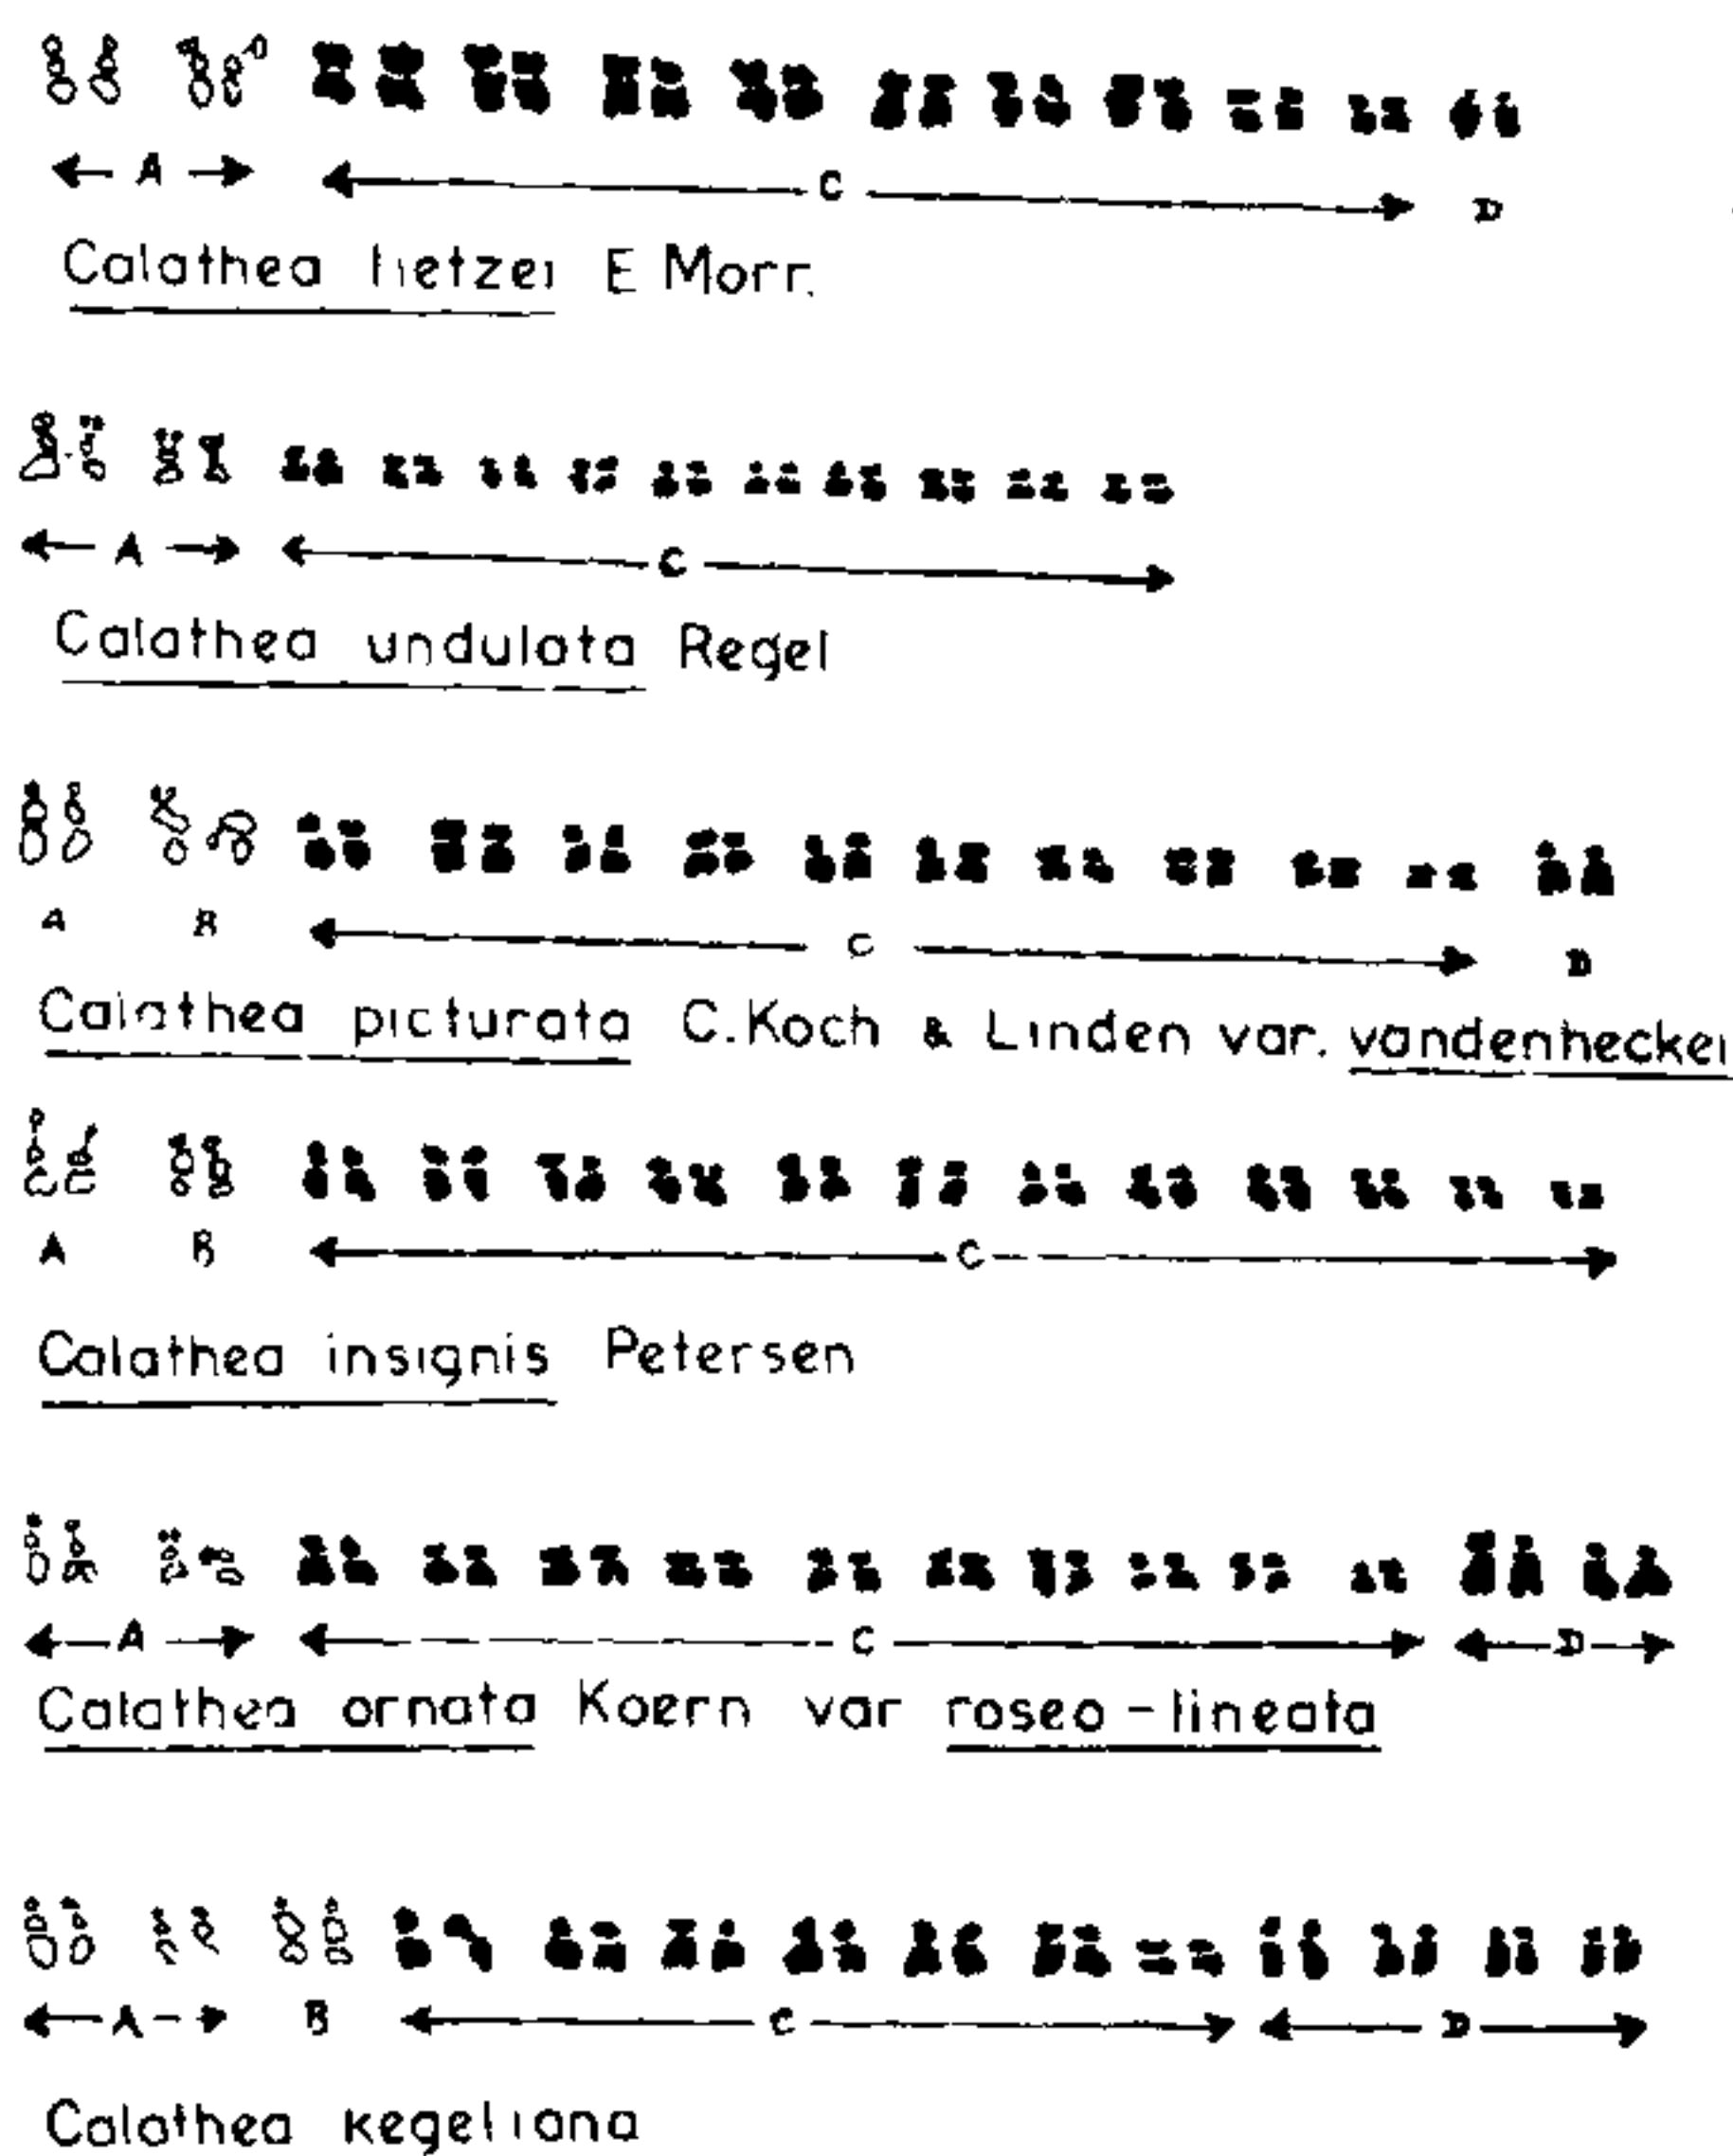 A C D
Calathea lietzei E Morr.
A C
Calathea undulata Regel
A B C D
Calathea picturata C.Koch & Linden var. vandenheckei
A B C
Calathea insignis Petersen
A C D
Calathea ornata Koern var roseo-lineata
A B C D
Calathea kegeliana